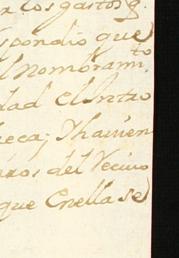 a los gastos q.
spondio que
el nombrami.to
dad el Intro
eca; Thavien
años del Vecino
que Enella se